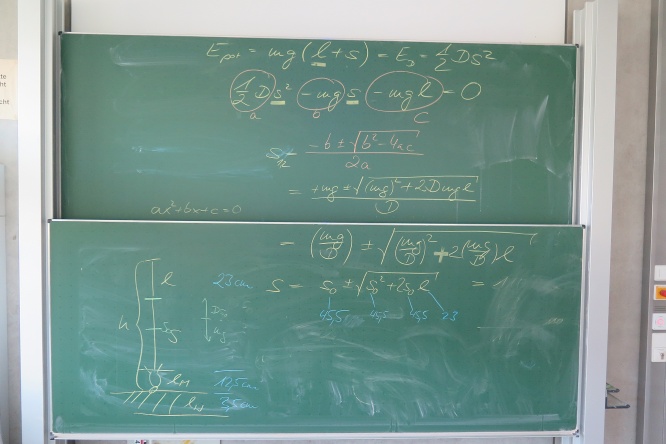 E_pot = mg(l+s) = E_D = 1/2 Ds²
1/2 D s² - mg s - mg l = 0
a b c
s_12 = (-b ± √(b² - 4ac)) / 2a
= (+mg ± √((mg)² + 2Dmgl)) / D
ax²+bx+c=0
= (mg/D) ± √((mg/D)² + 2(mg/D)l)
l 23cm s = s_0 ± √(s_0² + 2s_0 l) = 1
45,5 45,5 45,5 23
h
l_M 17,5cm